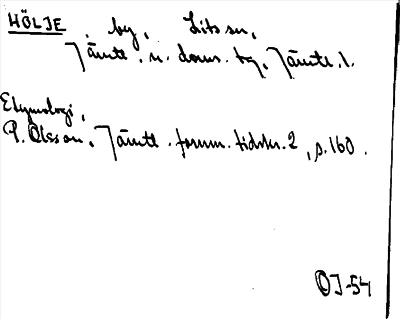 HÖLJE, by, Lits sn,
Jämtl. n. doms. tg, Jämtl. l.
Etymologi,
P. Olsson, Jämtl. fornm. tidskr. 2, s. 160.
OJ-54